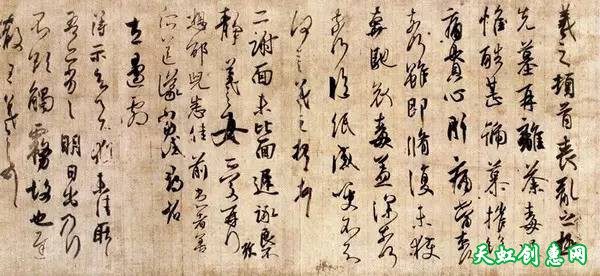 羲之頓首喪亂之極
先墓再離荼毒追
惟酷甚號慕摧絕
痛貫心肝痛當奈何
奈何雖即脩復未獲
奔馳哀毒益深奈何
奈何臨紙感哽不知
何言羲之頓首
二謝面未比面遲詠良不
靜羲之女愛再拜
想邵兒悉佳前患者善
所送議當試尋省
左邊劇
得示知足下猶未佳耿
吾亦劣劣明日出乃行
不欲觸霧故也遲
散王羲之頓首
天虹创意网